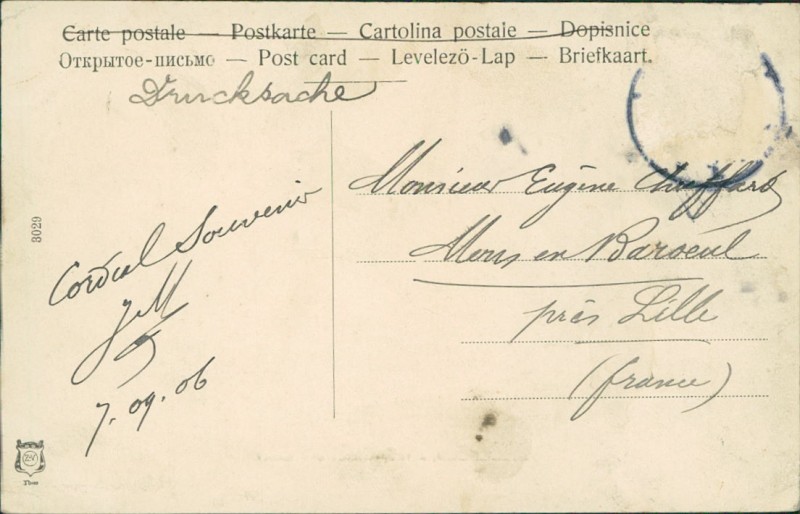 Carte postale — Postkarte — Cartolina postale — Dopisnice
Открытое-письмо — Post card — Levelező-Lap — Briefkaart.
Drucksache
Monsieur Eugène
Mons en Baroeul
près Lille
(france)
Cordial Souvenir
7.09.06
3029